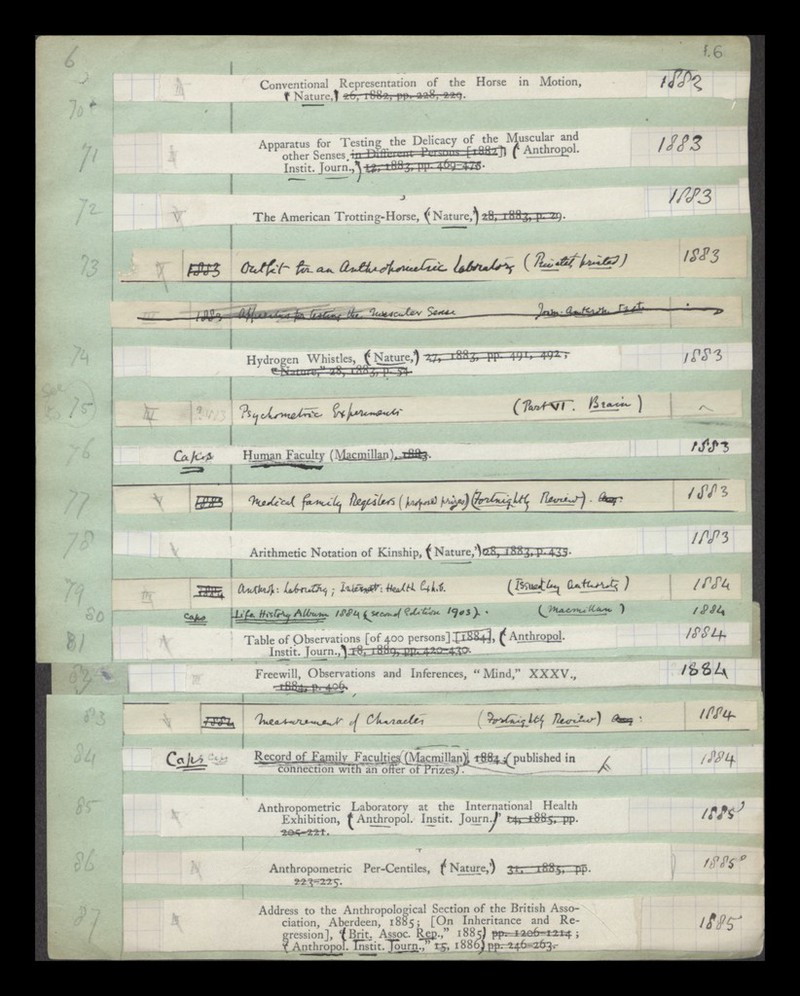 6 f.6
70* Conventional Representation of the Horse in Motion, 1883
(Nature,) 26, 1882, pp. 228, 229.
71 Apparatus for Testing the Delicacy of the Muscular and 1883
other Senses, in Different Persons [1882], (Anthropol.
Instit. Journ.,) 12, 1883, pp. 469-478.
72 The American Trotting-Horse, ("Nature,") 28, 1883, p. 29. 1883
73 1883 Outfit for an Anthropometric Laboratory (Privately printed) 1883
III 1883 Apparatus for testing the Muscular Sense Journ. Anthrop. Inst.
74 Hydrogen Whistles, ("Nature,") 27, 1883, pp. 491, 492; 1883
"Nature," 28, 1883, p. 54
75 III ?1883 Psychometric Experiments (Part VI. Brain)
76 Caps Human Faculty (Macmillan), 1883. 1883
77 V 1883 Medical Family Registers (proposed prizes) (Fortnightly Review). Aug. 1883
78 Arithmetic Notation of Kinship, ("Nature,") 28, 1883, p. 435. 1883
79 III 1884 Anthrop: Laboratory; Internat: Health Exhib. (Issued by Authority) 1884
80 caps Life History Album 1884 (second Edition 1903). (Macmillan) 1884
81 Table of Observations [of 400 persons] [1884], (Anthropol. 1884
Instit. Journ.,) 18, 1889, pp. 420-430.
82 Freewill, Observations and Inferences, "Mind," XXXV., 1884
1884, p. 406.
83 V 1884 Measurement of Character (Fortnightly Review) Aug: 1884
84 Caps Caps Record of Family Faculties (Macmillan), 1884; (published in 1884
connection with an offer of Prizes).
85 Anthropometric Laboratory at the International Health 1885
Exhibition, (Anthropol. Instit. Journ.)" 14, 1885, pp.
205-221.
86 Anthropometric Per-Centiles, ("Nature,") 31, 1885, pp. 1885
223-225.
87 Address to the Anthropological Section of the British Asso- 1885
ciation, Aberdeen, 1885; [On Inheritance and Re-
gression], "(Brit. Assoc. Rep.," 1885) pp. 1206-1214;
("Anthropol. Instit. Journ.," 15, 1886) pp. 246-263.